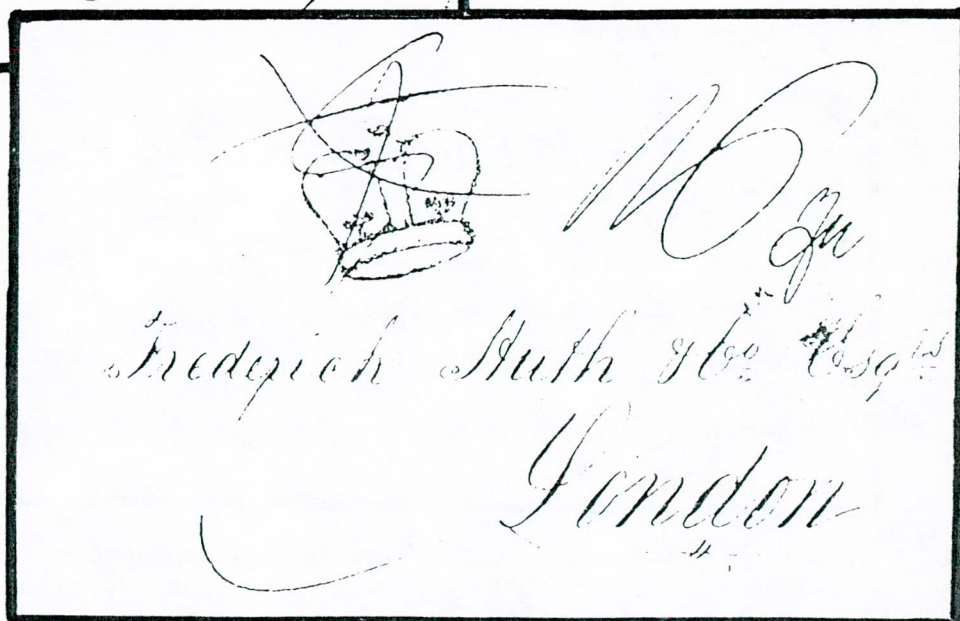 Frederich Huth & Co Esqrs
London